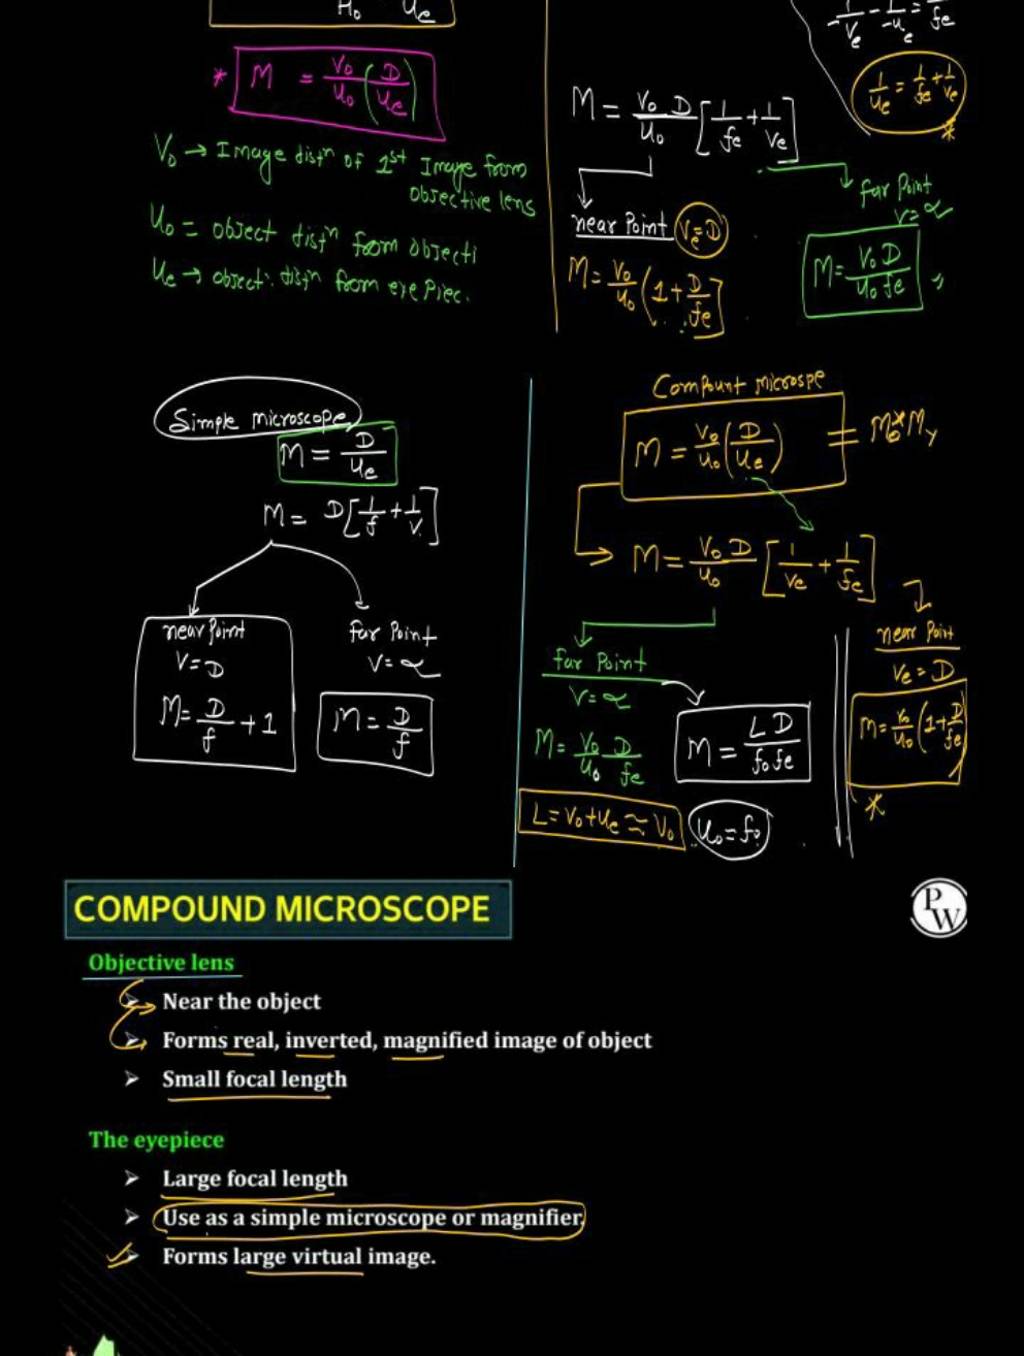 H₀ Ue
* M = V₀/U₀ (D/Ue)
V₀ → Image distⁿ of 1st Image from
objective lens
U₀ = object distⁿ from objecti
Ue → object. distⁿ from eye Piec.
1/-Ve - 1/-Ue = 1/fe
1/Ue = 1/fe + 1/Ve
*
M = V₀ D/U₀ [1/fe + 1/Ve]
near Point Ve = D
M = V₀/U₀ (1 + D/fe]
far Point
V = ∝
M = V₀ D/U₀ fe
Simple microscope
M = D/Ue
M = D[1/f + 1/V]
near Point
V = D
M = D/f + 1
far Point
V = ∝
M = D/f
Compount microspe
M = V₀/U₀ (D/Ue) = M₀*My
M = V₀ D/U₀ [1/Ve + 1/fe]
far Point
V = ∝
M = V₀/U₀ D/fe
M = LD/f₀fe
L = V₀ + Ue ≈ V₀
U₀ = f₀
near Point
Ve = D
M = V₀/U₀ (1 + D/fe)
*
COMPOUND MICROSCOPE
PW
Objective lens
➢ Near the object
➢ Forms real, inverted, magnified image of object
➢ Small focal length
The eyepiece
➢ Large focal length
➢ Use as a simple microscope or magnifier.
➢ Forms large virtual image.